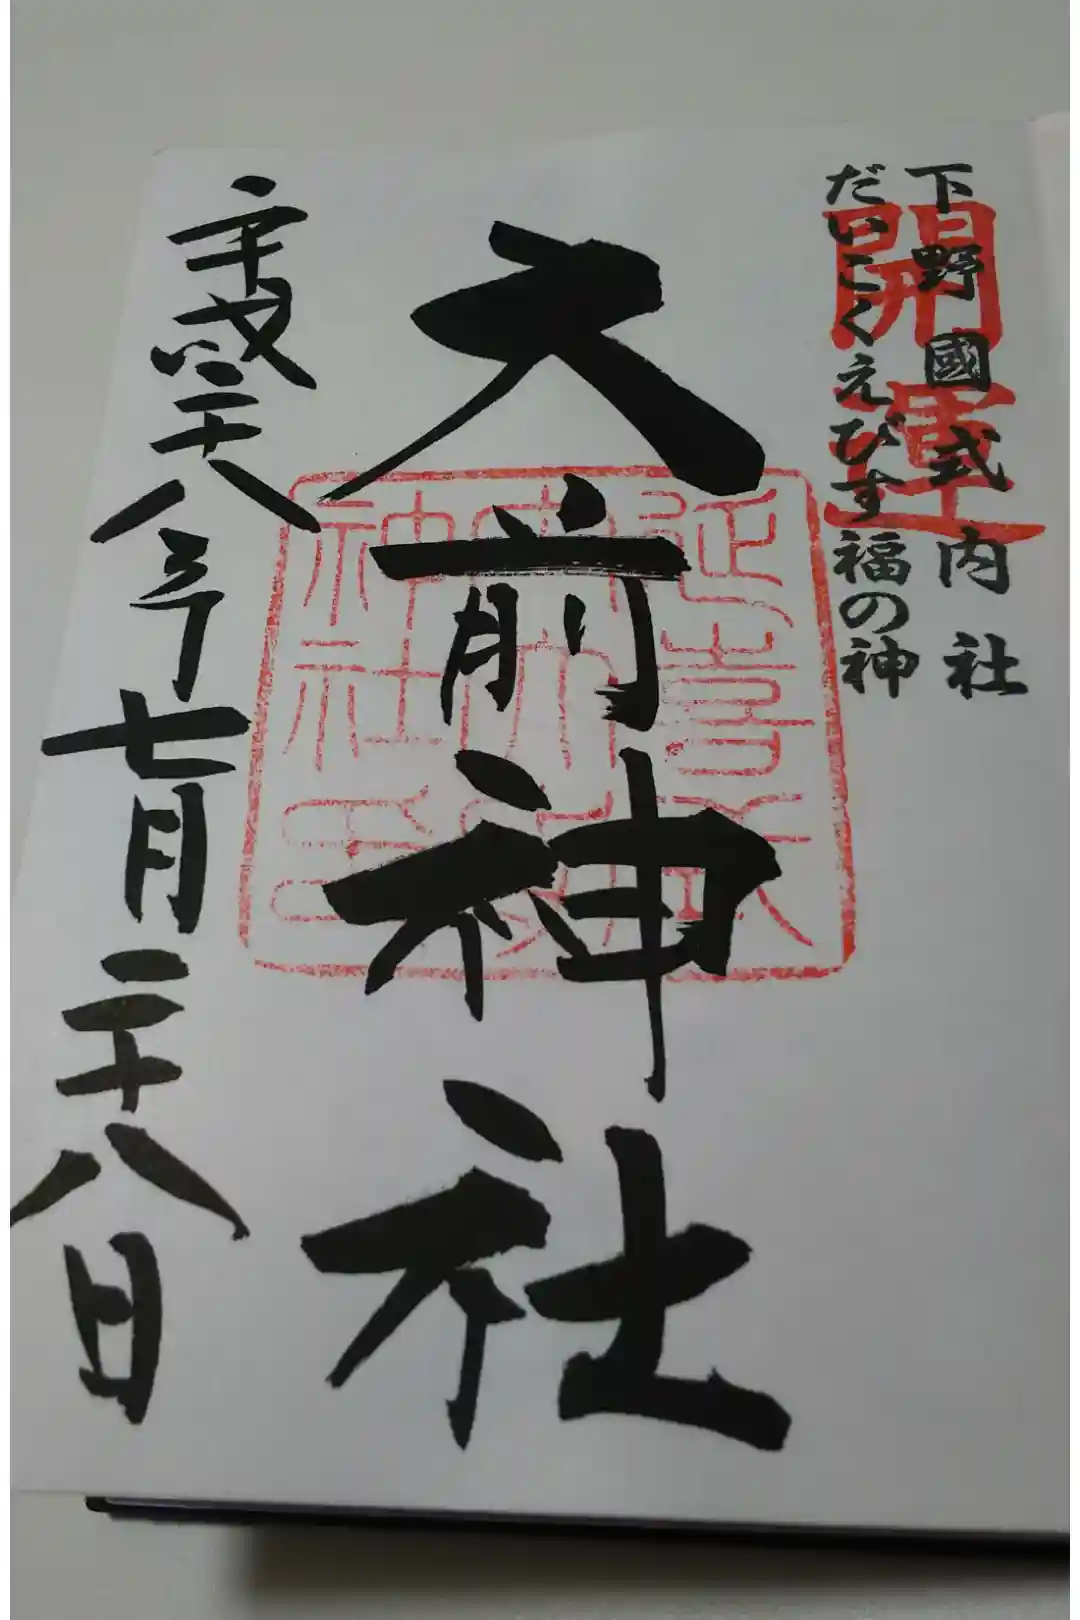 下野國式内社
だいこくえびす福の神
開運
大前神社
延喜式内大前神社
平成二十八年七月二十八日